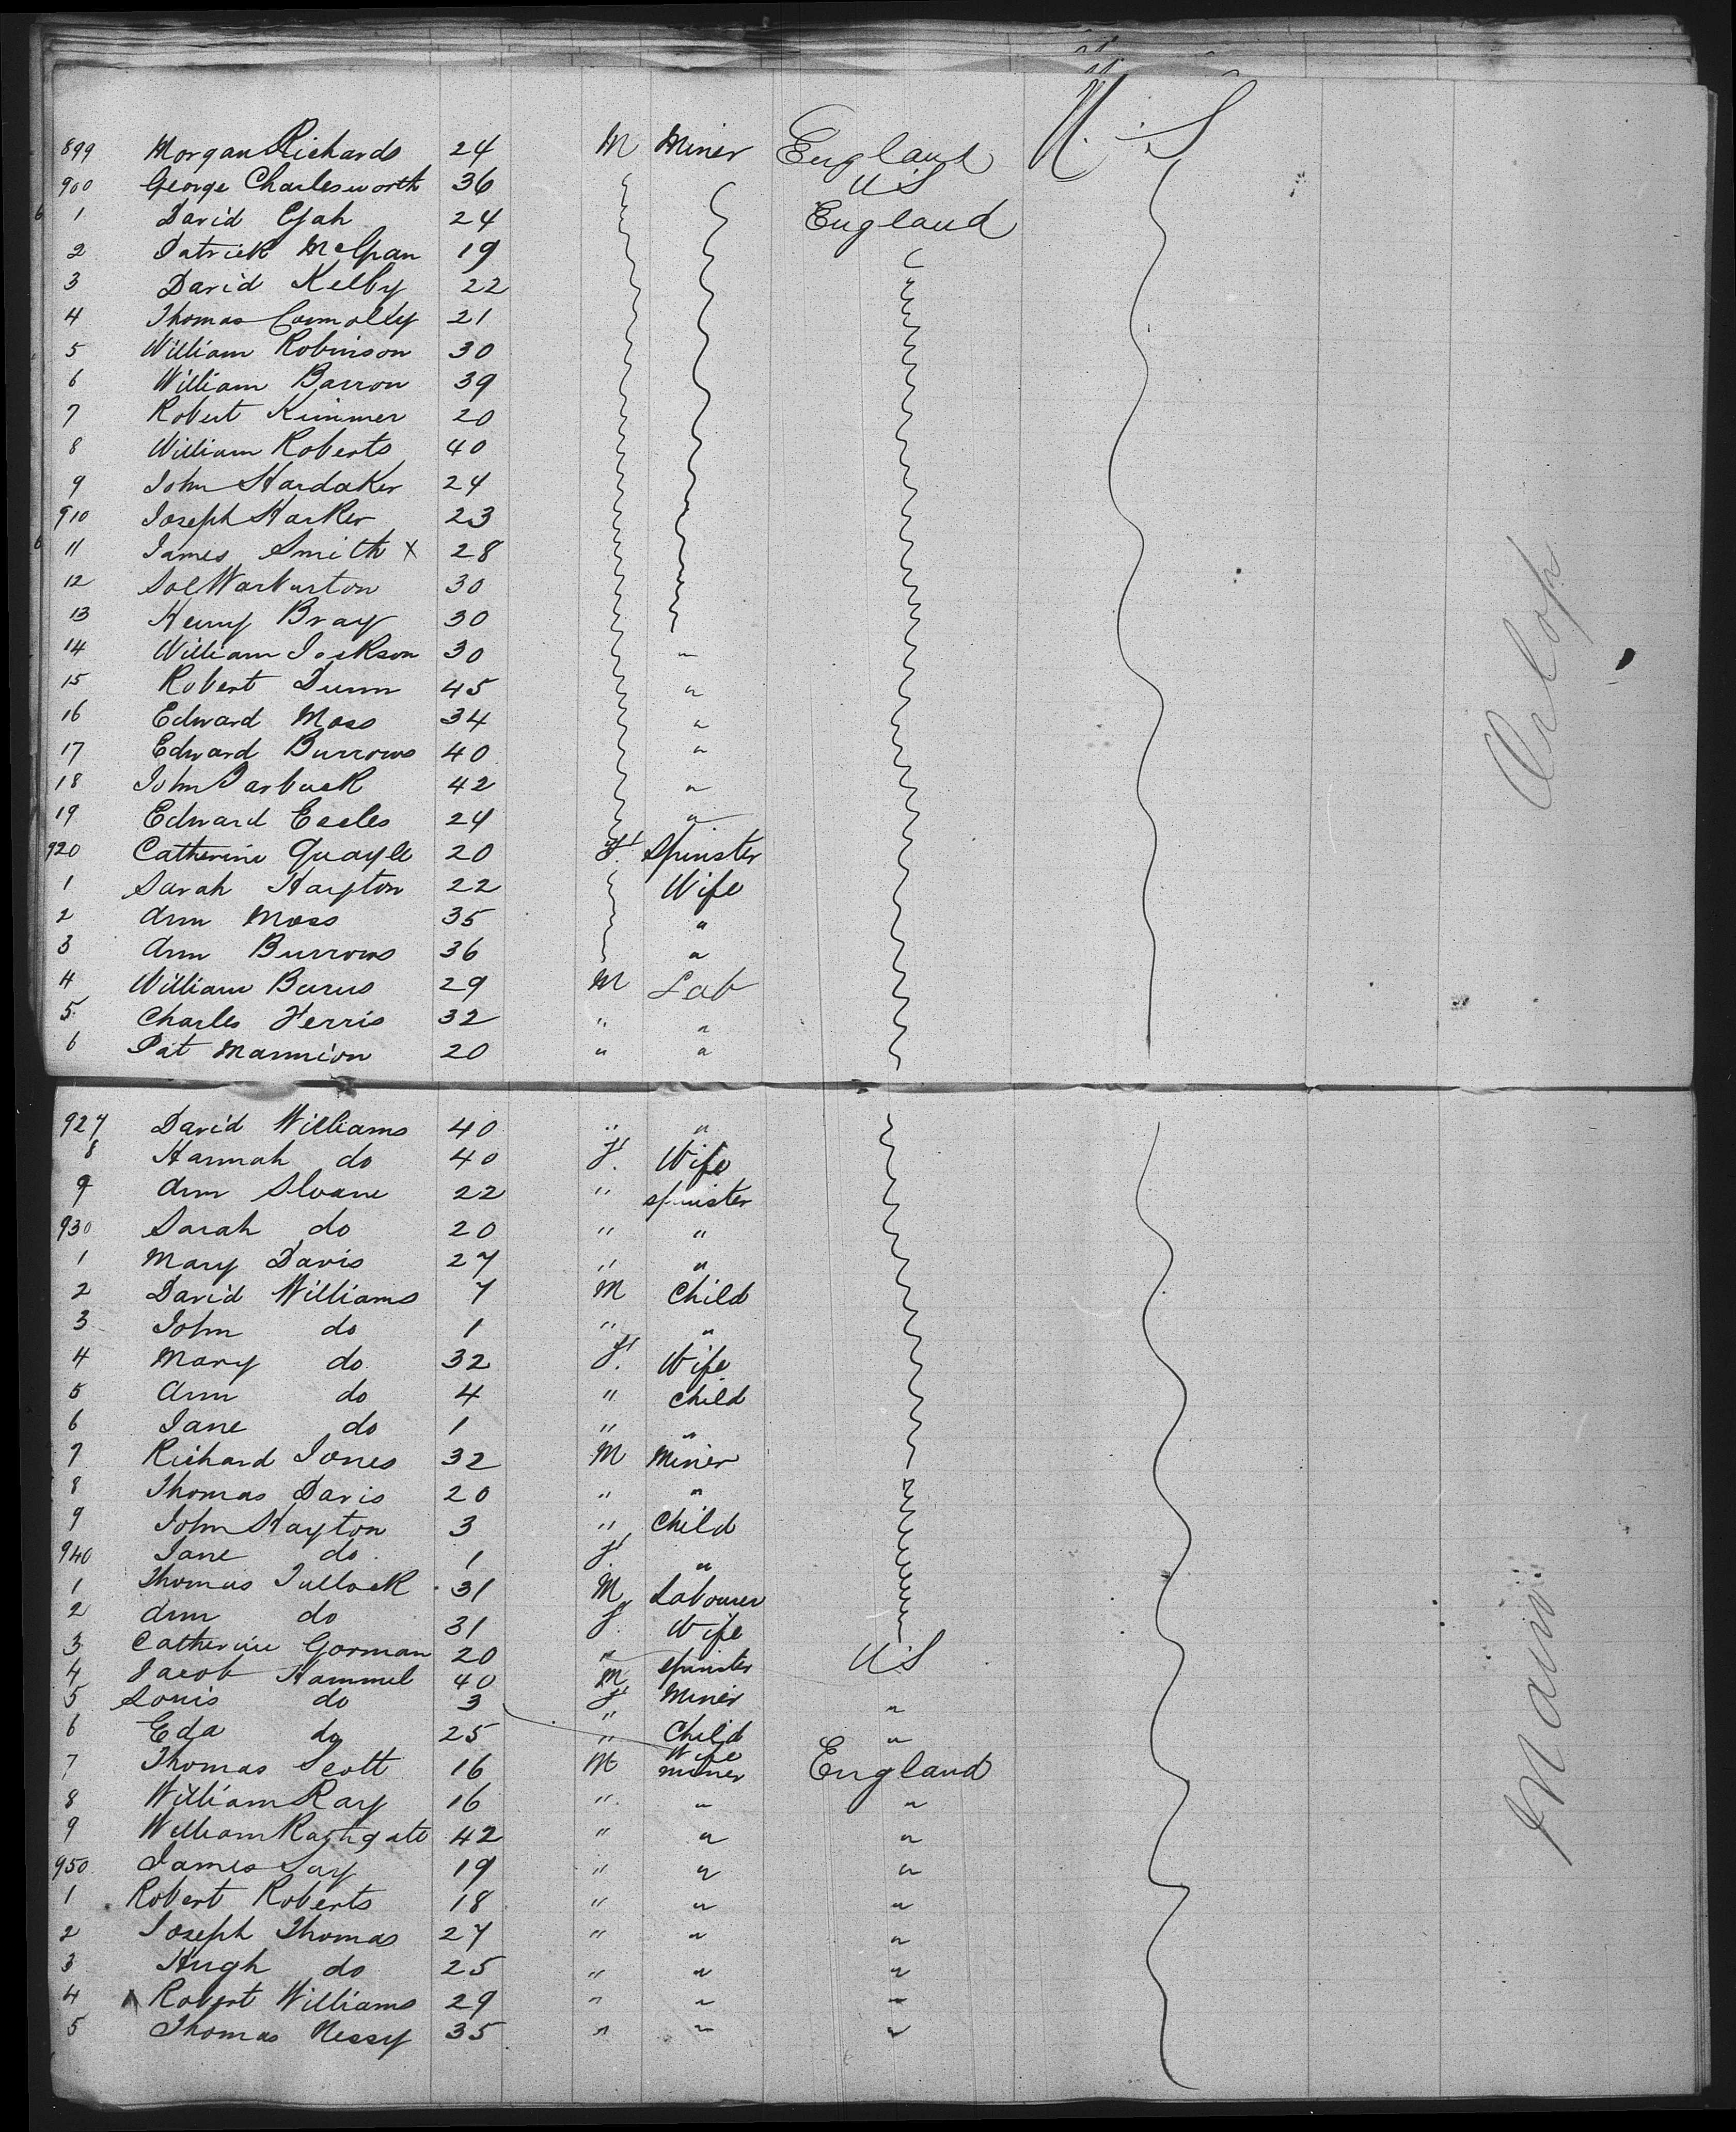 899 Morgan Richards 24 M Miner England U.S
900 George Charlesworth 36 US
1 David 24 England
2 Patrick 19
3 David Kelby 22
4 Thomas Connolly 21
5 William Robinson 30
6 William Barron 39
7 Robert Kimmer 20
8 William Roberts 40
9 John Hardaker 24
910 Joseph Harker 23
11 James Smith X 28
12 Sol Warburton 30
13 Henry Bray 30
14 William Jackson 30 "
15 Robert Dunn 45 "
16 Edward Moss 34 "
17 Edward Burrows 40 "
18 John Tarbuck 42 "
19 Edward Eccles 24 "
920 Catherine Quayle 20 F. Spinster
1 Sarah Hayton 22 Wife
2 Ann Moss 35 "
3 Ann Burrows 36 "
4 William Burns 29 M Lab
5 Charles Ferris 32 " "
6 Pat Mannion 20 " "
Orlop
927 David Williams 40 " "
8 Hannah do 40 F. Wife
9 Ann Sloane 22 " spinster
930 Sarah do 20 " "
1 Mary Davis 27 " "
2 David Williams 7 M Child
3 John do 1 " "
4 Mary do 32 F. Wife
5 Ann do 4 " child
6 Jane do 1 " "
7 Richard Jones 32 M Miner
8 Thomas Davis 20 " "
9 John Hayton 3 " Child
940 Jane do 1 F "
1 Thomas Tullock 31 M Labourer
2 Ann do 31 F. Wife
3 Catherine Gorman 20 " spinster US
4 Jacob Hammel 40 M Miner "
5 Louis do 3 F " Child "
6 Eda do 25 " Wife
7 Thomas Scott 16 M miner England
8 William Ray 16 " " "
9 William 42 " " "
950 James 19 " " "
1 Robert Roberts 18 " " "
2 Joseph Thomas 27 " " "
3 Hugh do 25 " " "
4 Robert Williams 29 " " "
5 Thomas Nessy 35 " " "
Main